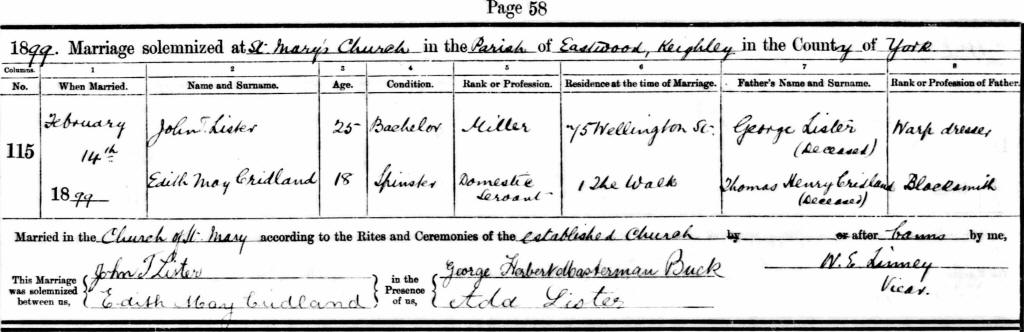 Page 58
1899. Marriage solemnized at St. Mary's Church in the Parish of Eastwood, Keighley in the County of York
Columns. 1 2 3 4 5 6 7 8
No. When Married. Name and Surname. Age. Condition. Rank or Profession. Residence at the time of Marriage. Father's Name and Surname. Rank or Profession of Father.
115 February 14th 1899 John T. Lister 25 Bachelor Miller 75 Wellington St. George Lister (Deceased) Warp dresser
Edith May Cridland 18 Spinster Domestic Servant 1 The Walk Thomas Henry Cridland (Deceased) Blacksmith
Married in the Church of St. Mary according to the Rites and Ceremonies of the established Church by or after banns by me,
This Marriage was solemnized between us, John T Lister in the Presence of us, George Herbert Masterman Buck W. E. Linney
Edith May Cridland Ada Lister Vicar.